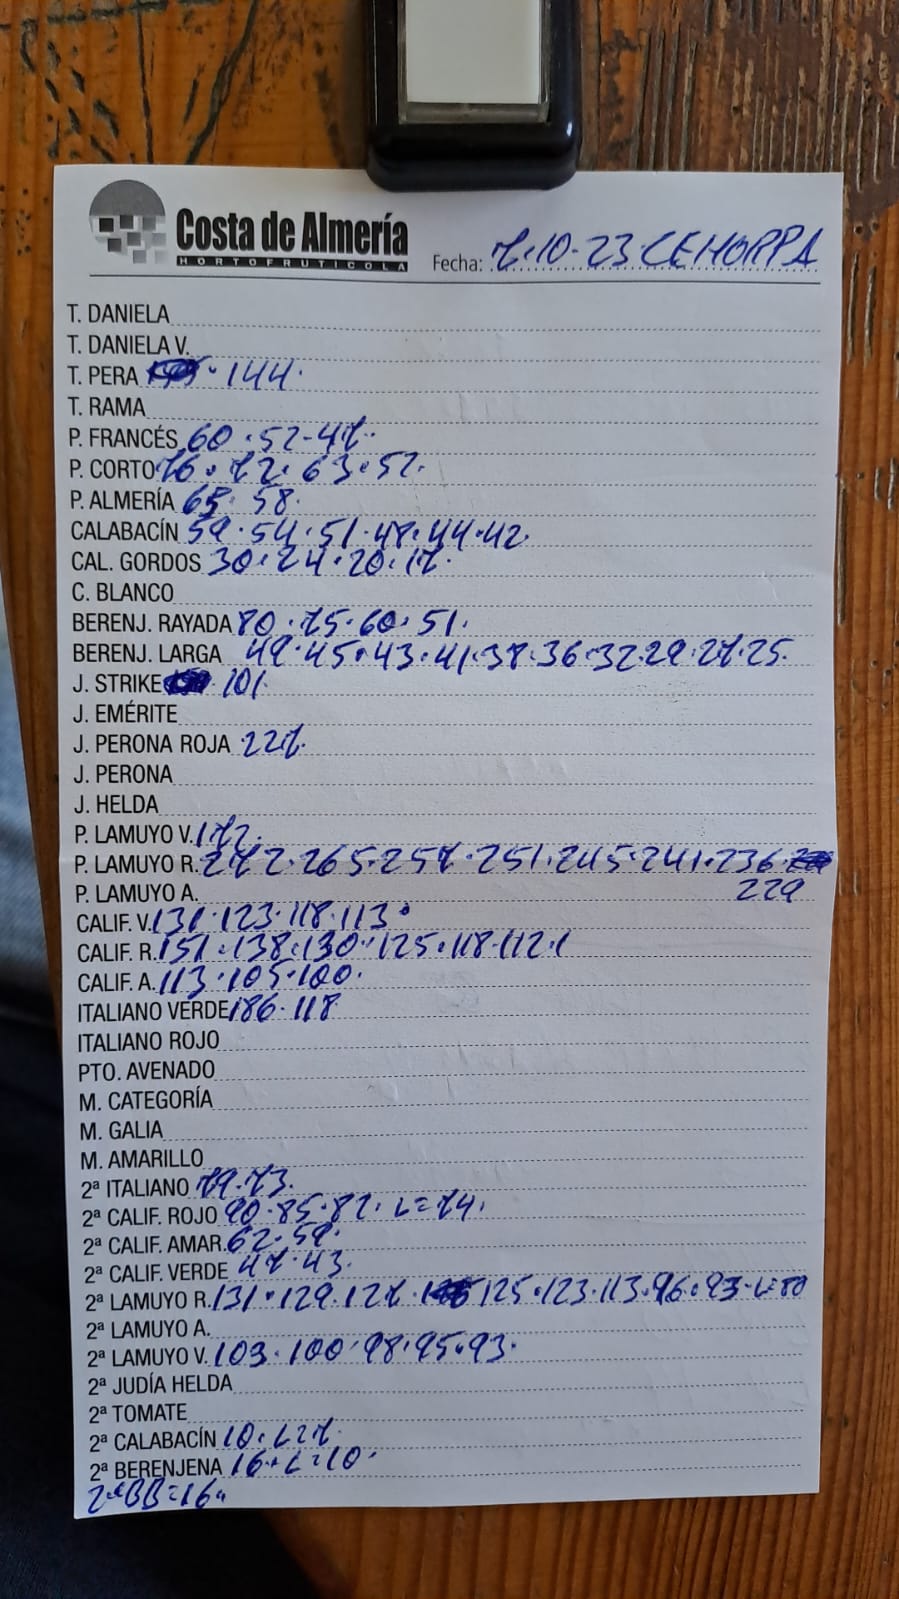 Costa de Almería
HORTOFRUTICOLA
Fecha: 7-10-23 CEHORPA
T. DANIELA
T. DANIELA V.
T. PERA 144.
T. RAMA
P. FRANCÉS 60.52-47.
P. CORTO 76.72.63.52.
P. ALMERÍA 65.58.
CALABACÍN 59.54.51.48.44.42.
CAL. GORDOS 30.24.20.17.
C. BLANCO
BERENJ. RAYADA 80.75.60.51.
BERENJ. LARGA 49.45.43.41.38.36.32.29.27.25.
J. STRIKE 101.
J. EMÉRITE
J. PERONA ROJA 227.
J. PERONA
J. HELDA
P. LAMUYO V. 172.
P. LAMUYO R. 272.265.257.251.245.241.236.
P. LAMUYO A. 229
CALIF. V. 131.123.118.113.
CALIF. R. 151.138.130.125.118.112.
CALIF. A. 113.105.100.
ITALIANO VERDE 186.118
ITALIANO ROJO
PTO. AVENADO
M. CATEGORÍA
M. GALIA
M. AMARILLO
2ª ITALIANO 79.73.
2ª CALIF. ROJO 90.85.82. L=74.
2ª CALIF. AMAR. 62.59.
2ª CALIF. VERDE 47.43.
2ª LAMUYO R. 131.129.127. 125.123.113.96.93-L=80
2ª LAMUYO A.
2ª LAMUYO V. 103.100.98.95.93.
2ª JUDÍA HELDA
2ª TOMATE
2ª CALABACÍN 10. L=7.
2ª BERENJENA 16. L=10.
2ªBB=16.